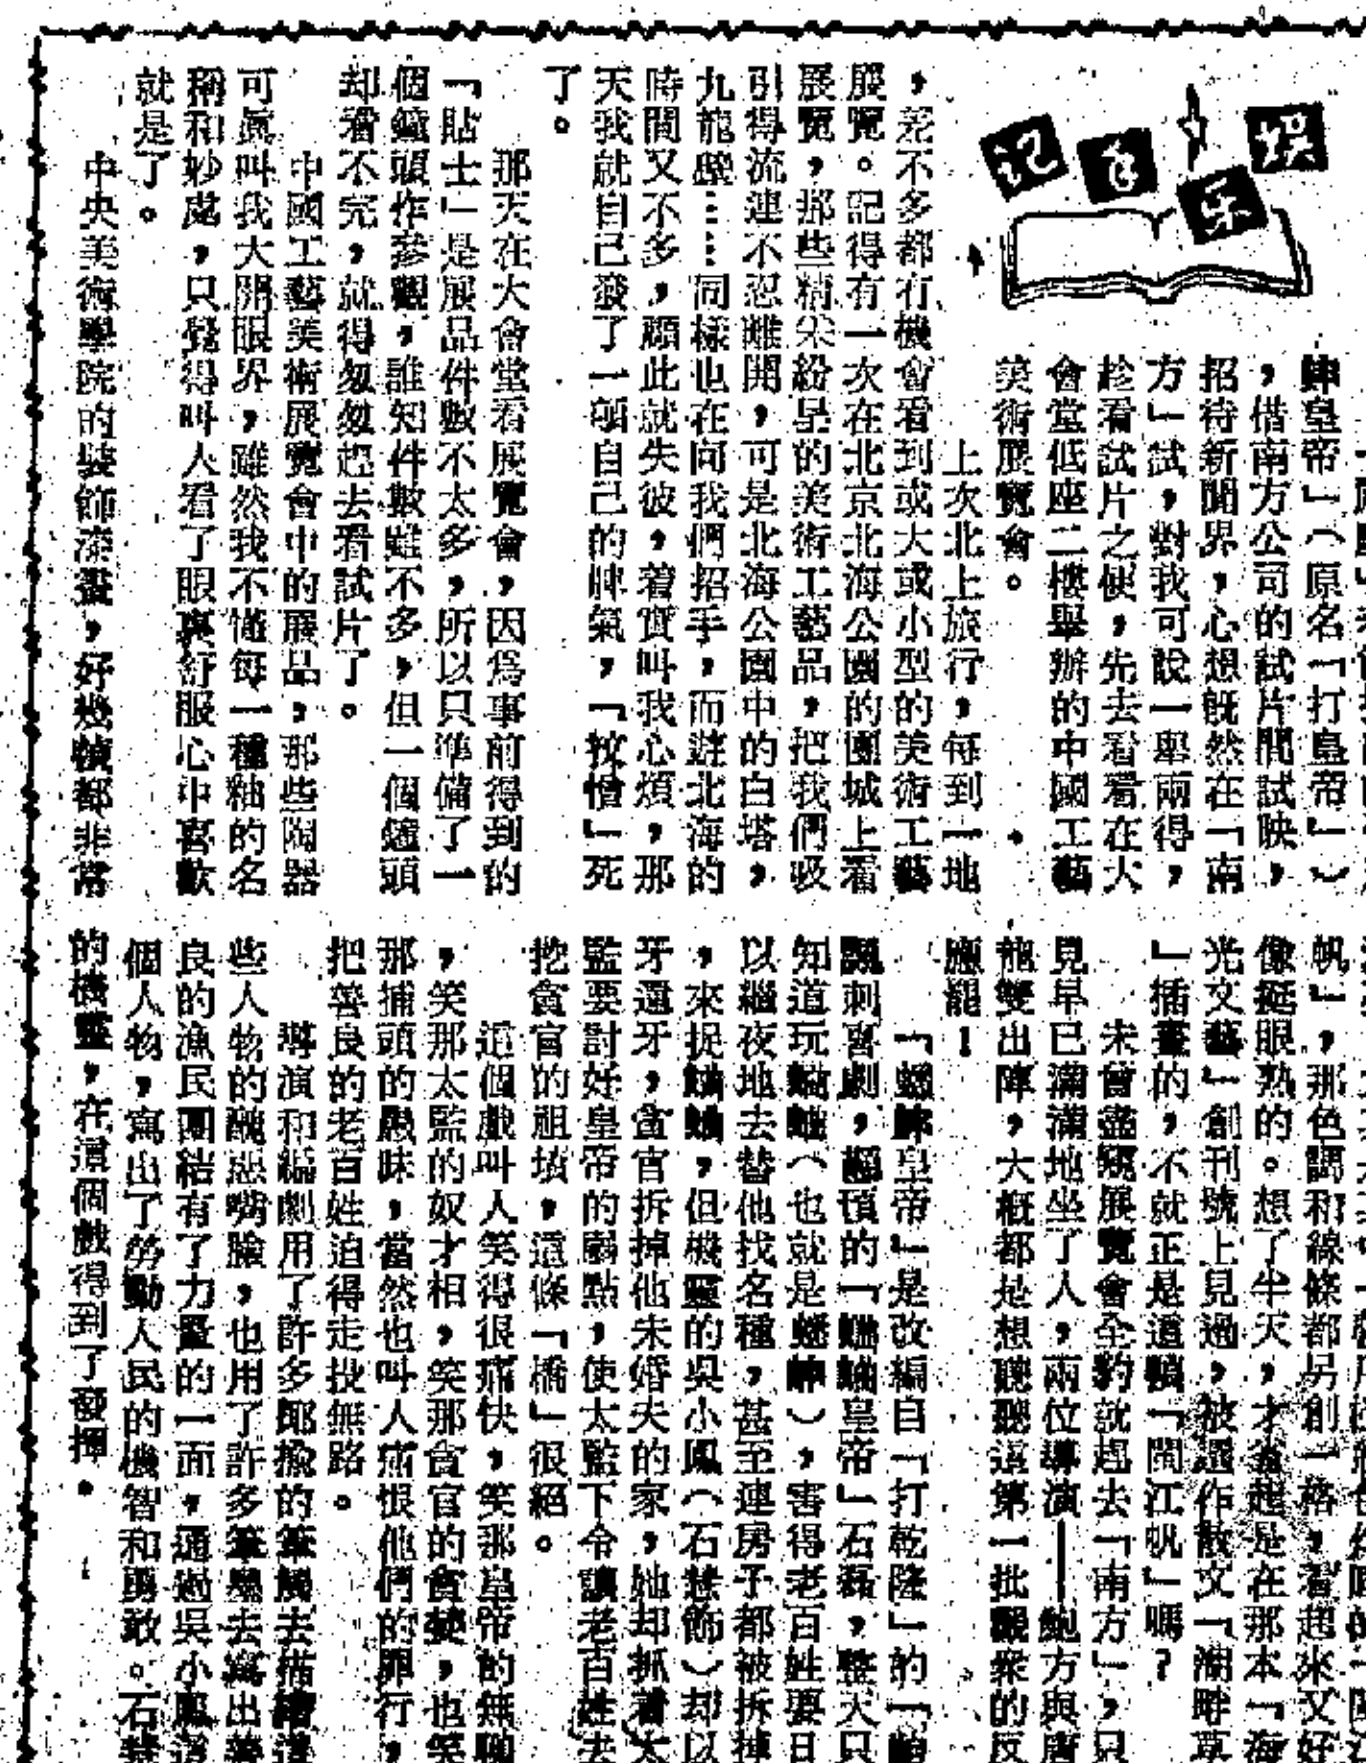 娱乐飞记
蟀皇帝」（原名「打皇帝」）
，借南方公司的試片間試映，
招待新聞界，心想既然在「南
方」試，對我可說一舉兩得，
趁看試片之便，先去看看在大
會堂低座二樓舉辦的中國工藝
美術展覽會。
上次北上旅行，每到一地
，差不多都有機會看到或大或小型的美術工藝
展覽。記得有一次在北京北海公園的團城上看
展覽，那些精采紛呈的美術工藝品，把我們吸
引得流連不忍離開，可是北海公園中的白塔，
九龍壁……同樣也在向我們招手，而遊北海的
時間又不多，顧此就失彼，着實叫我心煩，那
天我就自己發了一頓自己的脾氣，「扠憎」死
了。
那天在大會堂看展覽會，因為事前得到的
「貼士」是展品件數不太多，所以只準備了一
個鐘頭作參觀，誰知件數雖不多，但一個鐘頭
却看不完，就得匆匆趕去看試片了。
中國工藝美術展覽會中的展品，那些陶器
可眞叫我大開眼界，雖然我不懂每一種釉的名
稱和妙處，只覺得叫人看了眼裏舒服心中喜歡
就是了。
中央美術學院的裝飾漆畫，好幾幀都非常
帆」，那色調和線條都另創一格，看起來又好
像挺眼熟的。想了半天，才　起是在那本「海
光文藝」創刊號上見過，被選作散文「湖畔草
」插畫的，不就正是這幀「閩江帆」嗎？
未曾盡窺展覽會全豹就趕去「南方」，只
見早已滿滿地坐了人，兩位導演——鮑方與唐
龍雙出陣，大概都是想聽聽這第一批觀衆的反
應罷！
「蟋蟀皇帝」是改編自「打乾隆」的一齣
諷刺喜劇，顢頇的「蛐蛐皇帝」石磊，整天只
知道玩蛐蛐（也就是蟋蟀），害得老百姓要日
以繼夜地去替他找名種，甚至連房子都被拆掉
，來捉蛐蛐，但機靈的吳小鳳（石慧飾）却以
牙還牙，貪官拆掉他未婚夫的家，她却抓着太
監要討好皇帝的弱點，使太監下令讓老百姓去
挖貪官的祖墳，這條「橋」很絕。
這個戲叫人笑得很痛快，笑那皇帝的無聊
，笑那太監的奴才相，笑那貪官的貪婪，也笑
那捕頭的愚昧，當然也叫人痛恨他們的罪行，
把善良的老百姓迫得走投無路。
導演和編劇用了許多揶揄的筆觸去描繪這
些人物的醜惡嘴臉，也用了許多筆墨去寫出善
良的漁民團結有了力量的一面，通過吳小鳳這
個人物，寫出了勞動人民的機智和勇敢。石慧
的機靈，在這個戲得到了發揮。